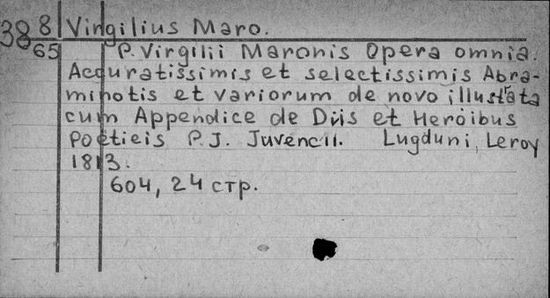 388 Virgilius Maro.
65 P. Virgilii Maronis Opera omnia.
Accuratissimis et selectissimis Abra-
minotis et variorum de novo illustrata
cum Appendice de Diis et Heroibus
Poetieis P. J. Juvencii. Lugduni, Leroy
1813.
604, 24 стр.